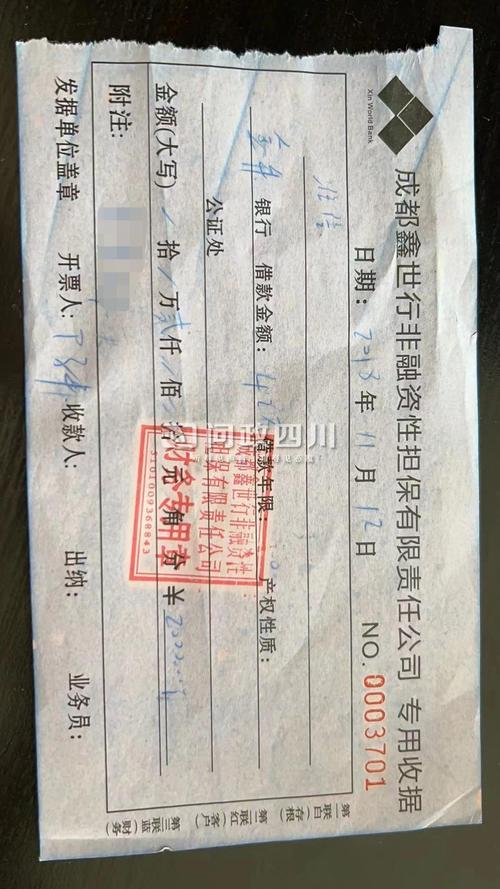 Xin World Bank
成都鑫世行非融资性担保有限责任公司 专用收据
日期：2013年11月12日 NO.0003701
银行 借款金额：42万 借款年限： 产权性质：
公证处
金额(大写) 拾 万贰仟 佰 拾 元 角 分 ￥
附注：
发据单位盖章 开票人： 收款人： 出纳： 业务员：
第一联(白)存根
第二联(红)客户
第三联(蓝)财务
成都鑫世行非融资性
担保有限责任公司
财务专用章
5101009368843
问政四川